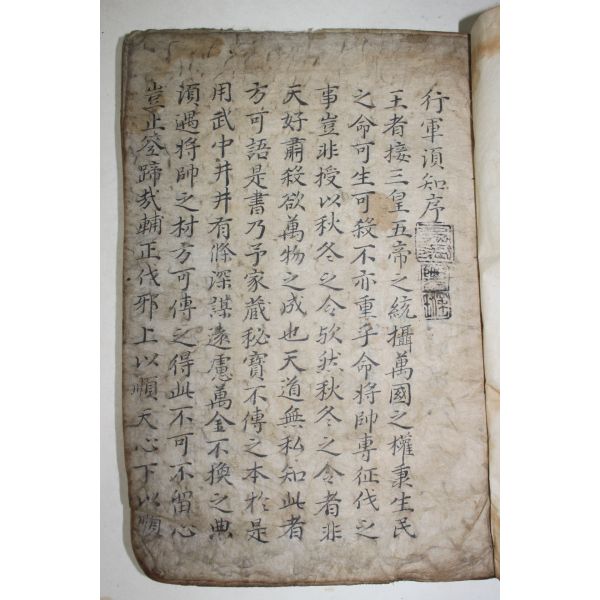 行軍須知序
王者接三皇五帝之統攝萬國之權秉生民
之命可生可殺不亦重乎命將帥專征伐之
事豈非授以秋冬之令欤然秋冬之令者非
天好肅殺欲萬物之成也天道無私知此者
方可語是書乃予家藏秘寶不傳之本於是
用武中井井有條深謀遠慮萬金不換之典
須遇將帥之材方可傳之得此不可不留心
豈止筌蹄哉輔正伐邪上以順天心下以順